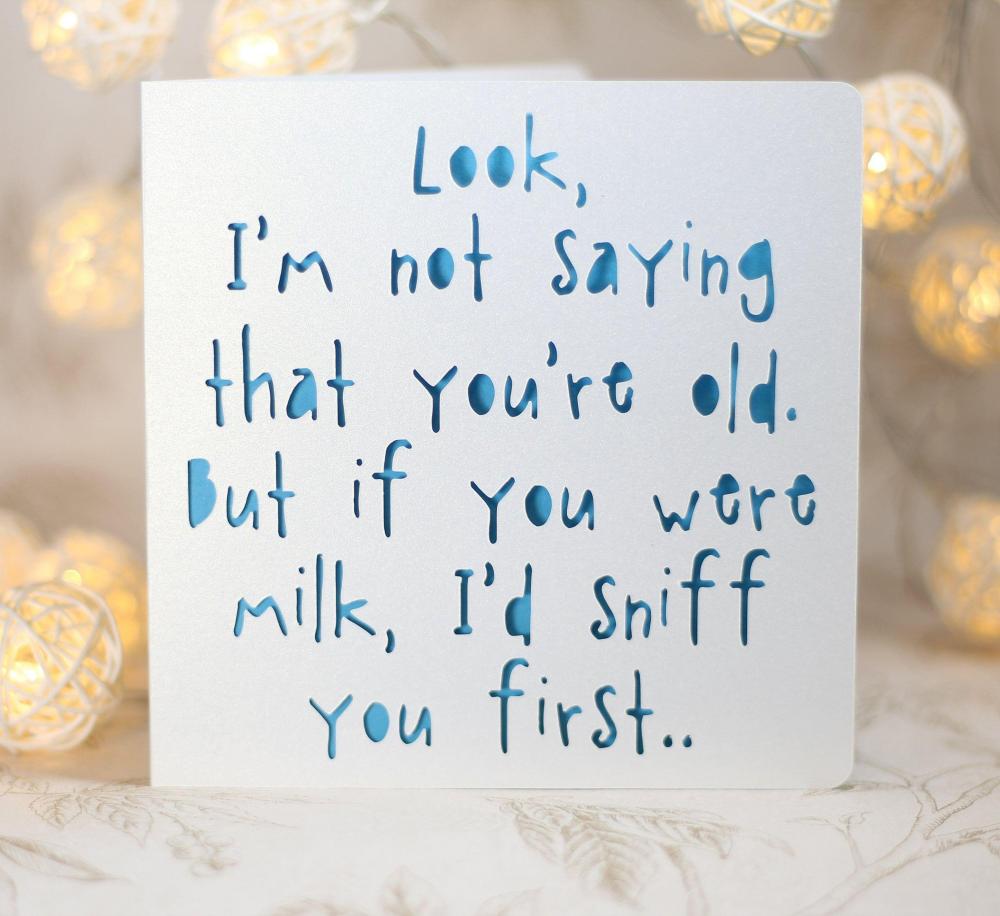 Look,
I'm not saying
that you're old.
But if you were
milk, I'd sniff
you first..